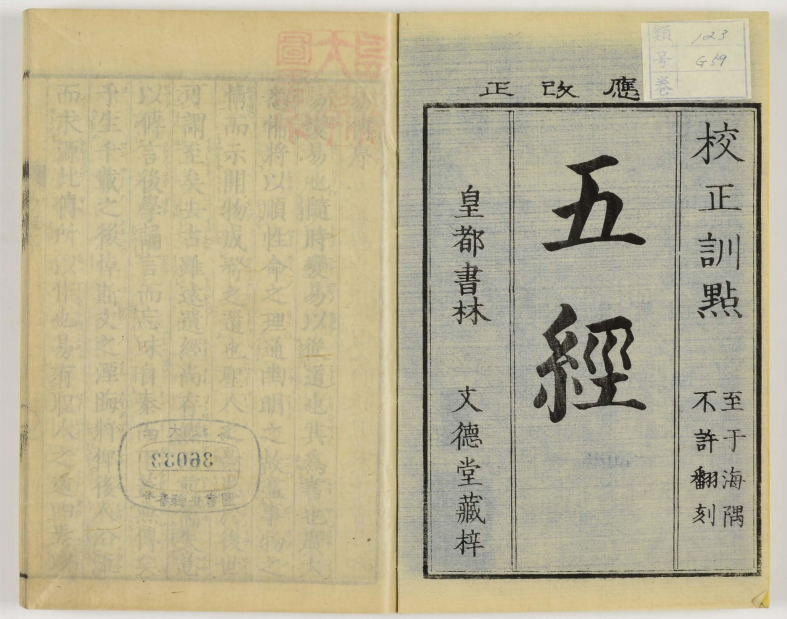 類 123
号 G59
卷
應改正
校正訓點
至于海隅
不許翻刻
五經
皇都書林 文德堂藏梓
易也隨時變易以從道也其爲書也廣大
備將以順性命之理通幽明之故盡事物之
情而示開物成務之道也聖人
後世
可謂至矣去古雖遠遺經尚存
以傳言後學誦言而忘味自秦而
予生千載之後悼斯文之湮晦將俾後人
而求源此傳所以作也易有聖人之道四焉
36033